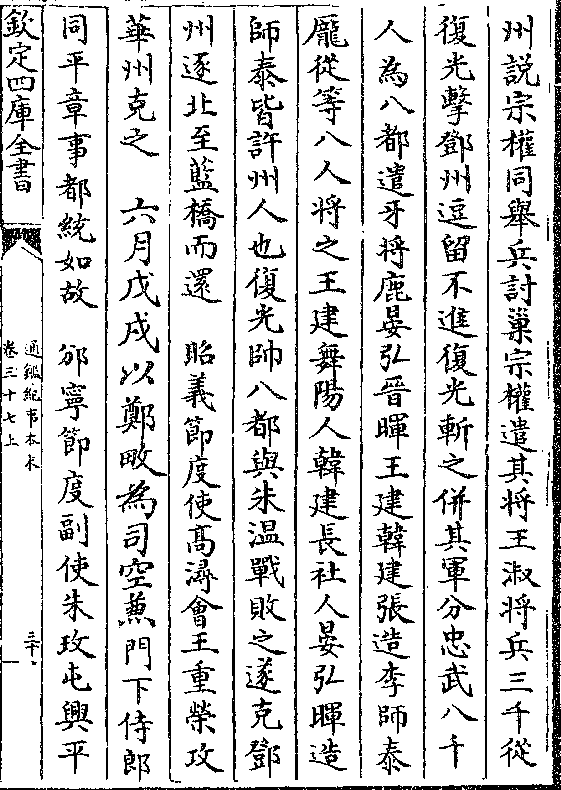 州說宗權同舉兵討巢宗權遣其將王淑將兵三千從
復光擊鄧州逗留不進復光斬之併其軍分忠武八千
人為八都遣牙將鹿晏弘晉暉王建韓建張造李師泰
龎從等八人將之王建舞陽人韓建長社人晏弘暉造
師泰皆許州人也復光帥八都與朱温戰敗之遂克鄧
州逐北至藍橋而還　昭義節度使髙潯會王重榮攻
華州克之　六月戊戌以鄭畋為司空兼門下侍郎
同平章事都統如故　邠寧節度副使朱玫屯興平
欽定四庫全書
通鑑紀事本末
卷三十七上
三十